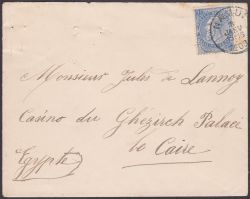 NAMUR
Monsieur Jules de Lannoy
Casino du Ghézireh Palace
le Caire
Egypte